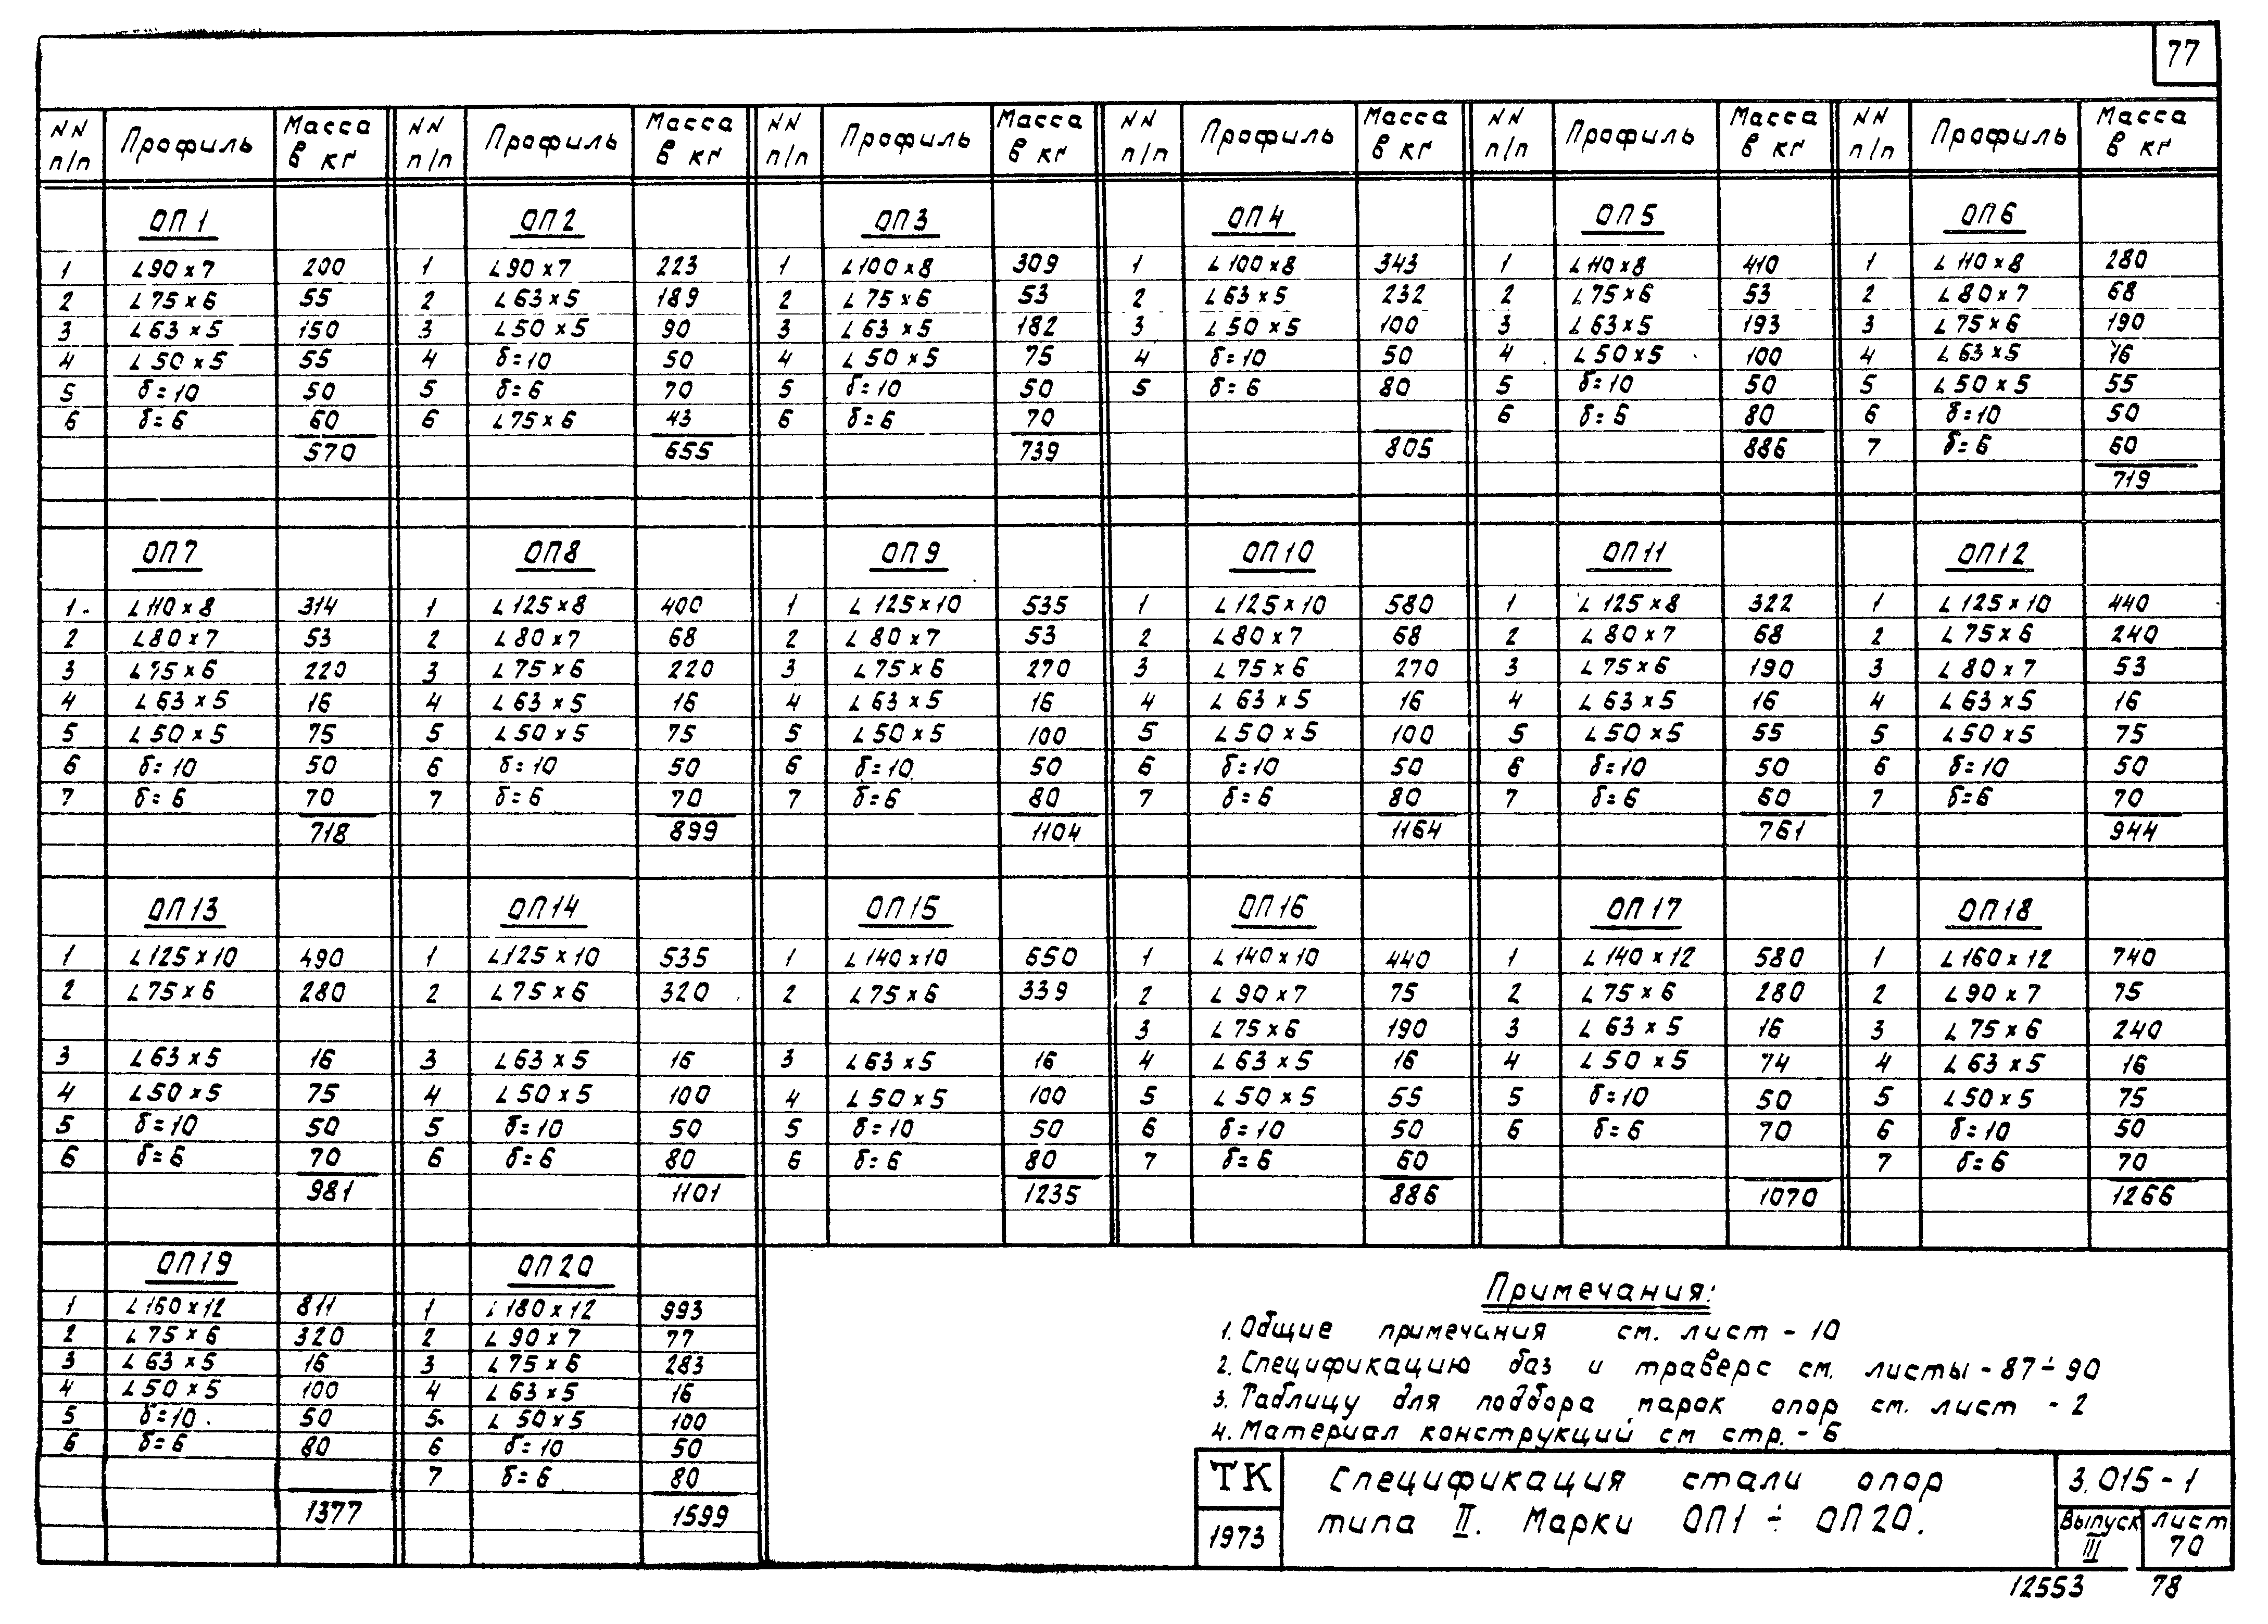 77
NN п/п Профиль Масса в кг NN п/п Профиль Масса в кг NN п/п Профиль Масса в кг NN п/п Профиль Масса в кг NN п/п Профиль Масса в кг NN п/п Профиль Масса в кг
ОП1 ОП2 ОП3 ОП4 ОП5 ОП6
1 ∟90×7 200 1 ∟90×7 223 1 ∟100×8 309 1 ∟100×8 343 1 ∟110×8 410 1 ∟110×8 280
2 ∟75×6 55 2 ∟63×5 189 2 ∟75×6 53 2 ∟63×5 232 2 ∟75×6 53 2 ∟80×7 68
3 ∟63×5 150 3 ∟50×5 90 3 ∟63×5 182 3 ∟50×5 100 3 ∟63×5 193 3 ∟75×6 190
4 ∟50×5 55 4 δ=10 50 4 ∟50×5 75 4 δ=10 50 4 ∟50×5 100 4 ∟63×5 16
5 δ=10 50 5 δ=6 70 5 δ=10 50 5 δ=6 80 5 δ=10 50 5 ∟50×5 55
6 δ=6 60 6 ∟75×6 43 6 δ=6 70 6 δ=6 80 6 δ=10 50
570 655 739 805 886 7 δ=6 60
719
ОП7 ОП8 ОП9 ОП10 ОП11 ОП12
1. ∟110×8 314 1 ∟125×8 400 1 ∟125×10 535 1 ∟125×10 580 1 ∟125×8 322 1 ∟125×10 440
2 ∟80×7 53 2 ∟80×7 68 2 ∟80×7 53 2 ∟80×7 68 2 ∟80×7 68 2 ∟75×6 240
3 ∟75×6 220 3 ∟75×6 220 3 ∟75×6 270 3 ∟75×6 270 3 ∟75×6 190 3 ∟80×7 53
4 ∟63×5 16 4 ∟63×5 16 4 ∟63×5 16 4 ∟63×5 16 4 ∟63×5 16 4 ∟63×5 16
5 ∟50×5 75 5 ∟50×5 75 5 ∟50×5 100 5 ∟50×5 100 5 ∟50×5 55 5 ∟50×5 75
6 δ=10 50 6 δ=10 50 6 δ=10 50 6 δ=10 50 6 δ=10 50 6 δ=10 50
7 δ=6 70 7 δ=6 70 7 δ=6 80 7 δ=6 80 7 δ=6 60 7 δ=6 70
718 899 1104 1164 761 944
ОП13 ОП14 ОП15 ОП16 ОП17 ОП18
1 ∟125×10 490 1 ∟125×10 535 1 ∟140×10 650 1 ∟140×10 440 1 ∟140×12 580 1 ∟160×12 740
2 ∟75×6 280 2 ∟75×6 320 2 ∟75×6 339 2 ∟90×7 75 2 ∟75×6 280 2 ∟90×7 75
3 ∟75×6 190 3 ∟63×5 16 3 ∟75×6 240
3 ∟63×5 16 3 ∟63×5 16 3 ∟63×5 16 4 ∟63×5 16 4 ∟50×5 74 4 ∟63×5 16
4 ∟50×5 75 4 ∟50×5 100 4 ∟50×5 100 5 ∟50×5 55 5 δ=10 50 5 ∟50×5 75
5 δ=10 50 5 δ=10 50 5 δ=10 50 6 δ=10 50 6 δ=6 70 6 δ=10 50
6 δ=6 70 6 δ=6 80 6 δ=6 80 7 δ=6 60 7 δ=6 70
981 1101 1235 886 1070 1266
ОП19 ОП20
1 ∟160×12 811 1 ∟180×12 993
2 ∟75×6 320 2 ∟90×7 77
3 ∟63×5 16 3 ∟75×6 283
4 ∟50×5 100 4 ∟63×5 16
5 δ=10. 50 5. ∟50×5 100
6 δ=6 80 6 δ=10 50
7 δ=6 80
1377 1599
Примечания:
1. Общие примечания см. лист - 10
2. Спецификацию баз и траверс см. листы - 87÷90
3. Таблицу для подбора марок опор см. лист - 2
4. Материал конструкций см стр. - 6
ТК
1973
Спецификация стали опор
типа II. Марки ОП1 ÷ ОП20.
3.015-1
Выпуск III
лист 70
12553 78